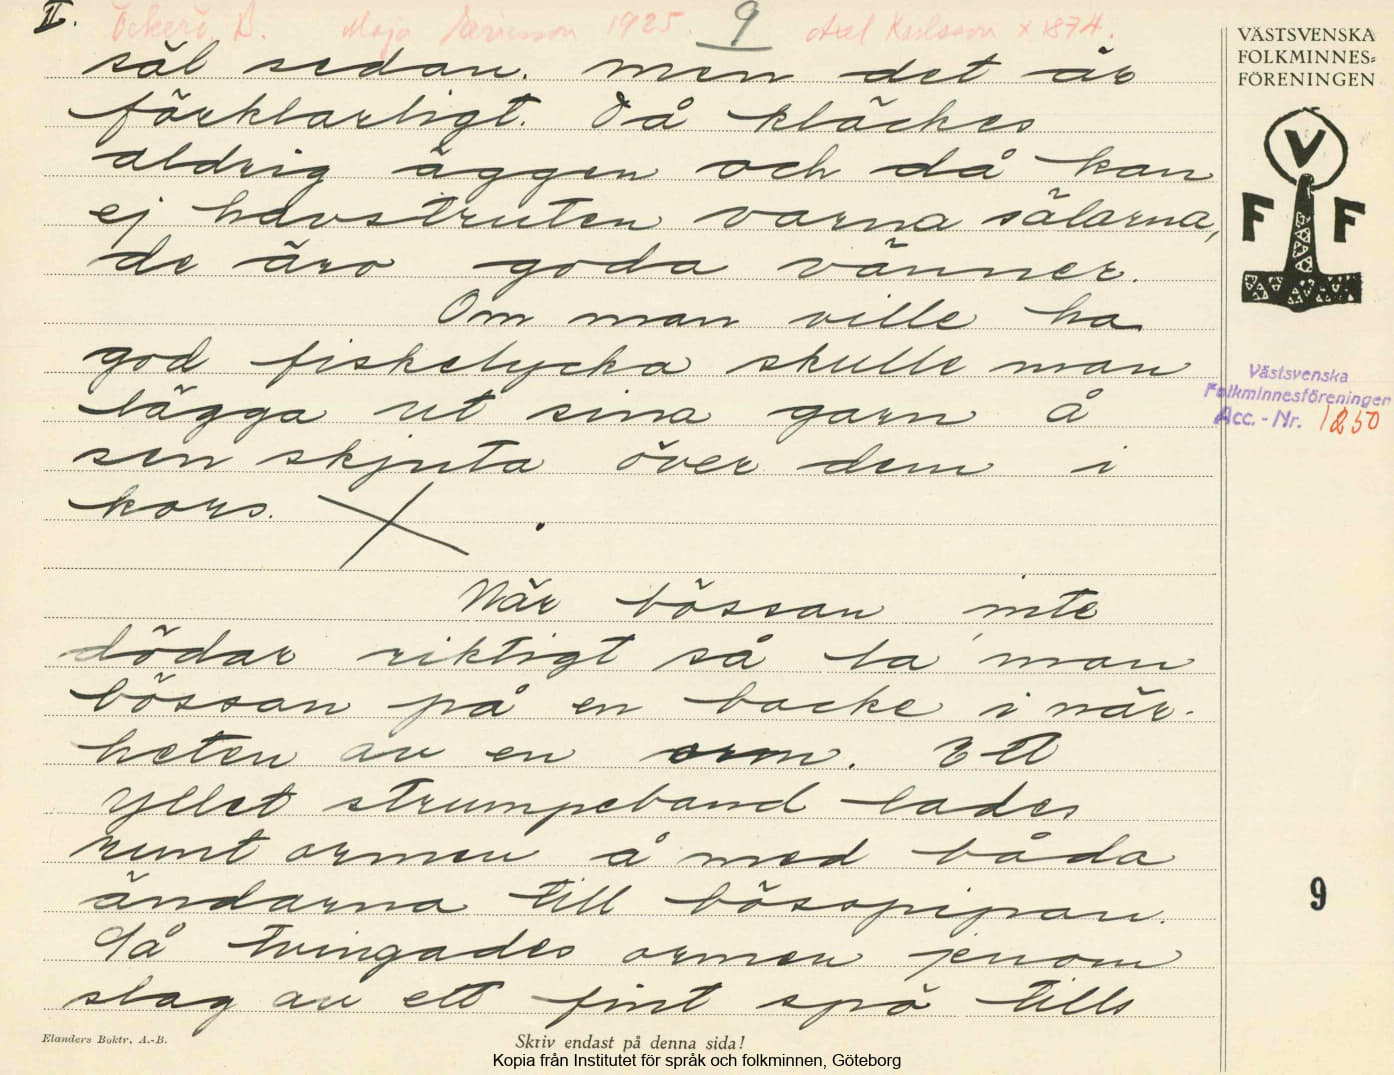 II. Öckerö, D. Maja Ericsson 1925. 9 Axel Karlsson × 1874.
säl sedan. men det är
förklarligt. Då kläckes
aldrig äggen och då kan
ej havstruten varna sälarna,
de äro goda vänner.
Om man ville ha
god fiskelycka skulle man
lägga ut sina garn å
sen skjuta över dem i
kors.
När bössan inte
dödar riktigt så la man
bössan på en backe i när-
heten av en orm. Ett
yllet strumpeband lades
runt ormen å med båda
ändarna till bösspipan.
Så tvingades ormen jenom
slag av ett fint spö tills
VÄSTSVENSKA
FOLKMINNES=
FÖRENINGEN
V
F F
Västsvenska
Folkminnesföreningen
Acc. - Nr. 1250
9
Elanders Boktr. A.-B.
Skriv endast på denna sida!
Kopia från Institutet för språk och folkminnen, Göteborg